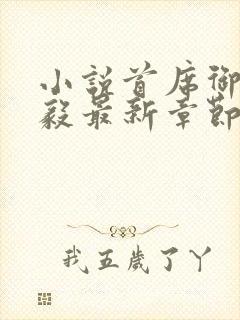 小說首席御
毅最新章節
我五歲了丫